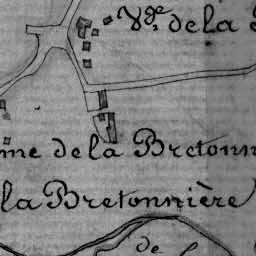 Vge. de la
me de la Bretonn
la Bretonnière
de